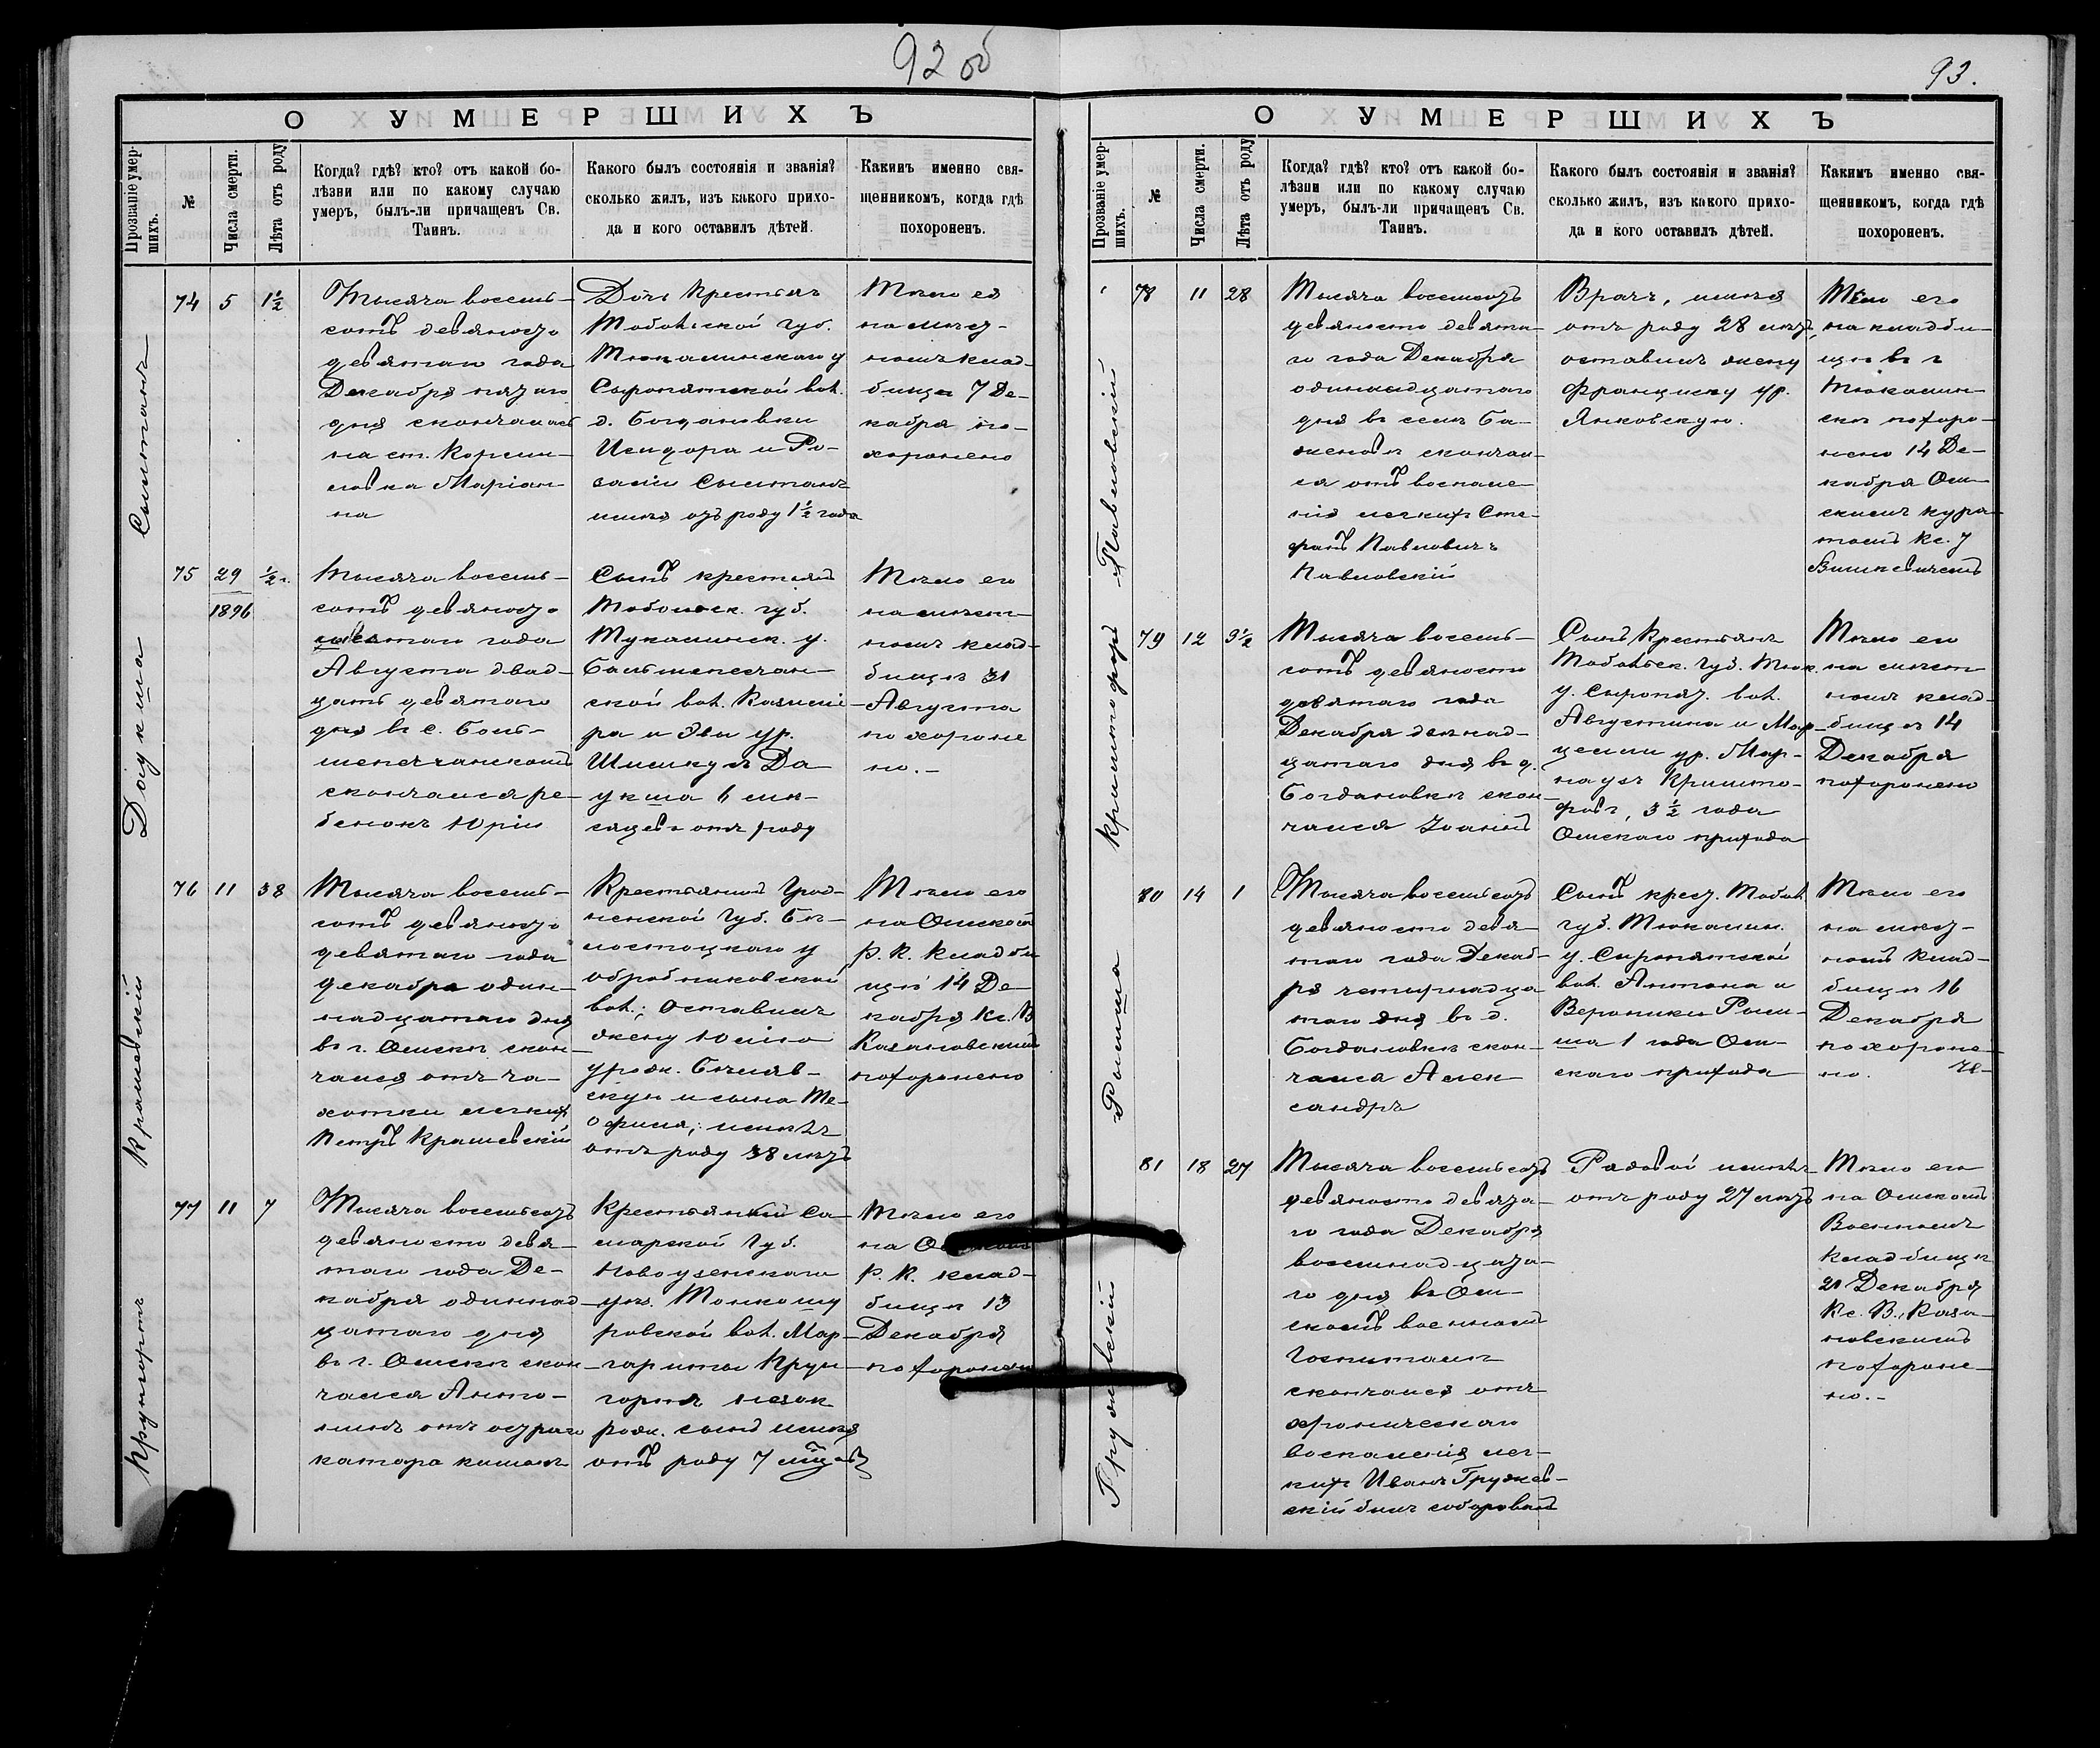 92 об
О УМЕРШИХЪ
Прозваніе умер-
шихъ.
№
Числа смерти.
Лѣта отъ роду
Когда? гдѣ? кто? отъ какой бо-
лѣзни или по какому случаю
умеръ, былъ-ли причащенъ Св.
Таинъ.
Какого былъ состоянія и званія?
сколько жилъ, изъ какого прихо-
да и кого оставилъ дѣтей.
Какимъ именно свя-
щенникомъ, когда гдѣ
похороненъ.
74 5 1½
Тысяча восемь-
сотъ девяносто
девятаго года
Декабря пятаго
дня скончалась
на ст. Корми-
ловка Маріан-
на
Дочь крестьянъ
Тобольской губ.
Тюкалинскаго у
Сыропятской вол.
д. Богдановки
Исидора и Ро-
заліи
имѣя отъ роду 1½ года
Тѣло ея
на мѣст-
номъ клад-
бищѣ 7 Де-
кабря по-
хоронено
Даукша
75 29 ½ г.
1896
Тысяча восемь-
сотъ девяносто
шестаго года
Августа двад-
цать девятаго
дня въ с. Боль-
шепесчанскомъ
скончался ре-
бенокъ Юрій
Сынъ крестьянъ
Тобольск. губ.
Тукалинск. у.
Большепесчан-
ской вол. Казими-
ра и Эвы ур.
Шимкусъ Да
укша 6 мѣ-
сяцевъ отъ роду
Тѣло его
на мѣст-
номъ клад-
бищѣ 31
Августа
похороне
но.-
Крашевскій
76 11 38
Тысяча восемь-
сотъ девяносто
девятаго года
декабря один-
надцатаго дня
въ г. Омскѣ скон-
чался отъ ча-
хотки легкихъ
Петръ Крашевскій
Крестьянинъ Грод-
ненской губ. Бѣ-
лостоцкаго у
обрубниковской
вол.; оставилъ
жену Юлію
урож.
скую и сына Те-
офила; имѣлъ
отъ роду 38 лѣтъ
Тѣло его
на Омскомъ
Р. К. кладби
щѣ 14 Де-
кабря Кс. В
Казановскимъ
похоронено
Крунгортъ
77 11 7
Тысяча восемьсотъ
девяносто девя-
таго года Де-
кабря одиннад-
цатаго дня
въ г. Омскѣ скон-
чался Анто-
нинъ отъ остраго
катара кишекъ
Крестьянки Са-
марской губ.
Новоузенскаго
уѣз. Тонкошу
ровской вол. Мар-
гариты Крун-
гортъ незак
рожд. сынъ имѣя
отъ роду 7 мѣс
Тѣло его
на Омскомъ
Р. К. клад-
бищѣ 13
Декабря
похоронено
93.
О УМЕРШИХЪ
Прозваніе умер-
шихъ.
№
Числа смерти.
Лѣта отъ роду
Когда? гдѣ? кто? отъ какой бо-
лѣзни или по какому случаю
умеръ, былъ-ли причащенъ Св.
Таинъ.
Какого былъ состоянія и званія?
сколько жилъ, изъ какого прихо-
да и кого оставилъ дѣтей.
Какимъ именно свя-
щенникомъ, когда гдѣ
похороненъ.
Павловскій
78 11 28
Тысяча восемьсотъ
девяносто девята-
го года Декабря
одинадцатаго
дня въ селѣ Ба-
женовѣ скончал-
ся отъ воспале-
нія легкихъ Сте-
фанъ Павловичъ
Павловскій
Врачъ, имѣя
отъ роду 28 лѣтъ,
оставилъ жену
Францишку ур.
Янковскую.
Тѣло его
на кладби-
щѣ въ г
Тюкалин-
скѣ похоро-
нено 14 Де-
кабря Ом-
скимъ кура-
томъ Кс. У
Билькевичемъ
Криштофоръ
79 12 3½
Тысяча восемь-
сотъ девяносто
девятаго года
Декабря двѣнад-
цатаго дня въ д.
Богдановкѣ скон-
чался Іоаннъ
Сынъ Крестьянъ
Тобольск. губ. Тюк.
у. Сыропят. вол.
Августина и Мар-
целли ур. Мар-
наусъ Кришто-
форъ, 3½ года
Омскаго прихода
Тѣло его
на мѣст
номъ клад-
бищѣ 14
Декабря
похоронено
Ромша
80 14 1
Тысяча восемьсотъ
девяносто девя-
таго года Декаб-
ря четырнадца-
таго дня въ д.
Богдановкѣ скон-
чался Алек-
сандръ
Сынъ крест. Тобол
губ. Тюкалин.
у. Сыропятской
вол. Антона и
Вероники Ром-
ша 1 года Ом-
скаго прихода
Тѣло его
на мѣст-
номъ клад-
бищѣ 16
Декабря
похороне-
но.
Гружевскій
81 18 27
Тысяча восемьсотъ
девяносто девята-
го года Декабря
восемнадцата-
го дня въ Ом-
скомъ военномъ
Госпиталѣ
скончался отъ
хроническаго
воспаленія лег-
кихъ Иванъ Гружев-
скій былъ соборованъ
Рядовой имѣлъ
отъ роду 27 лѣтъ
Тѣло его
на Омскомъ
Военномъ
кладбищѣ
21 Декабря
Кс. В. Каза-
новскимъ
похороне-
но.-